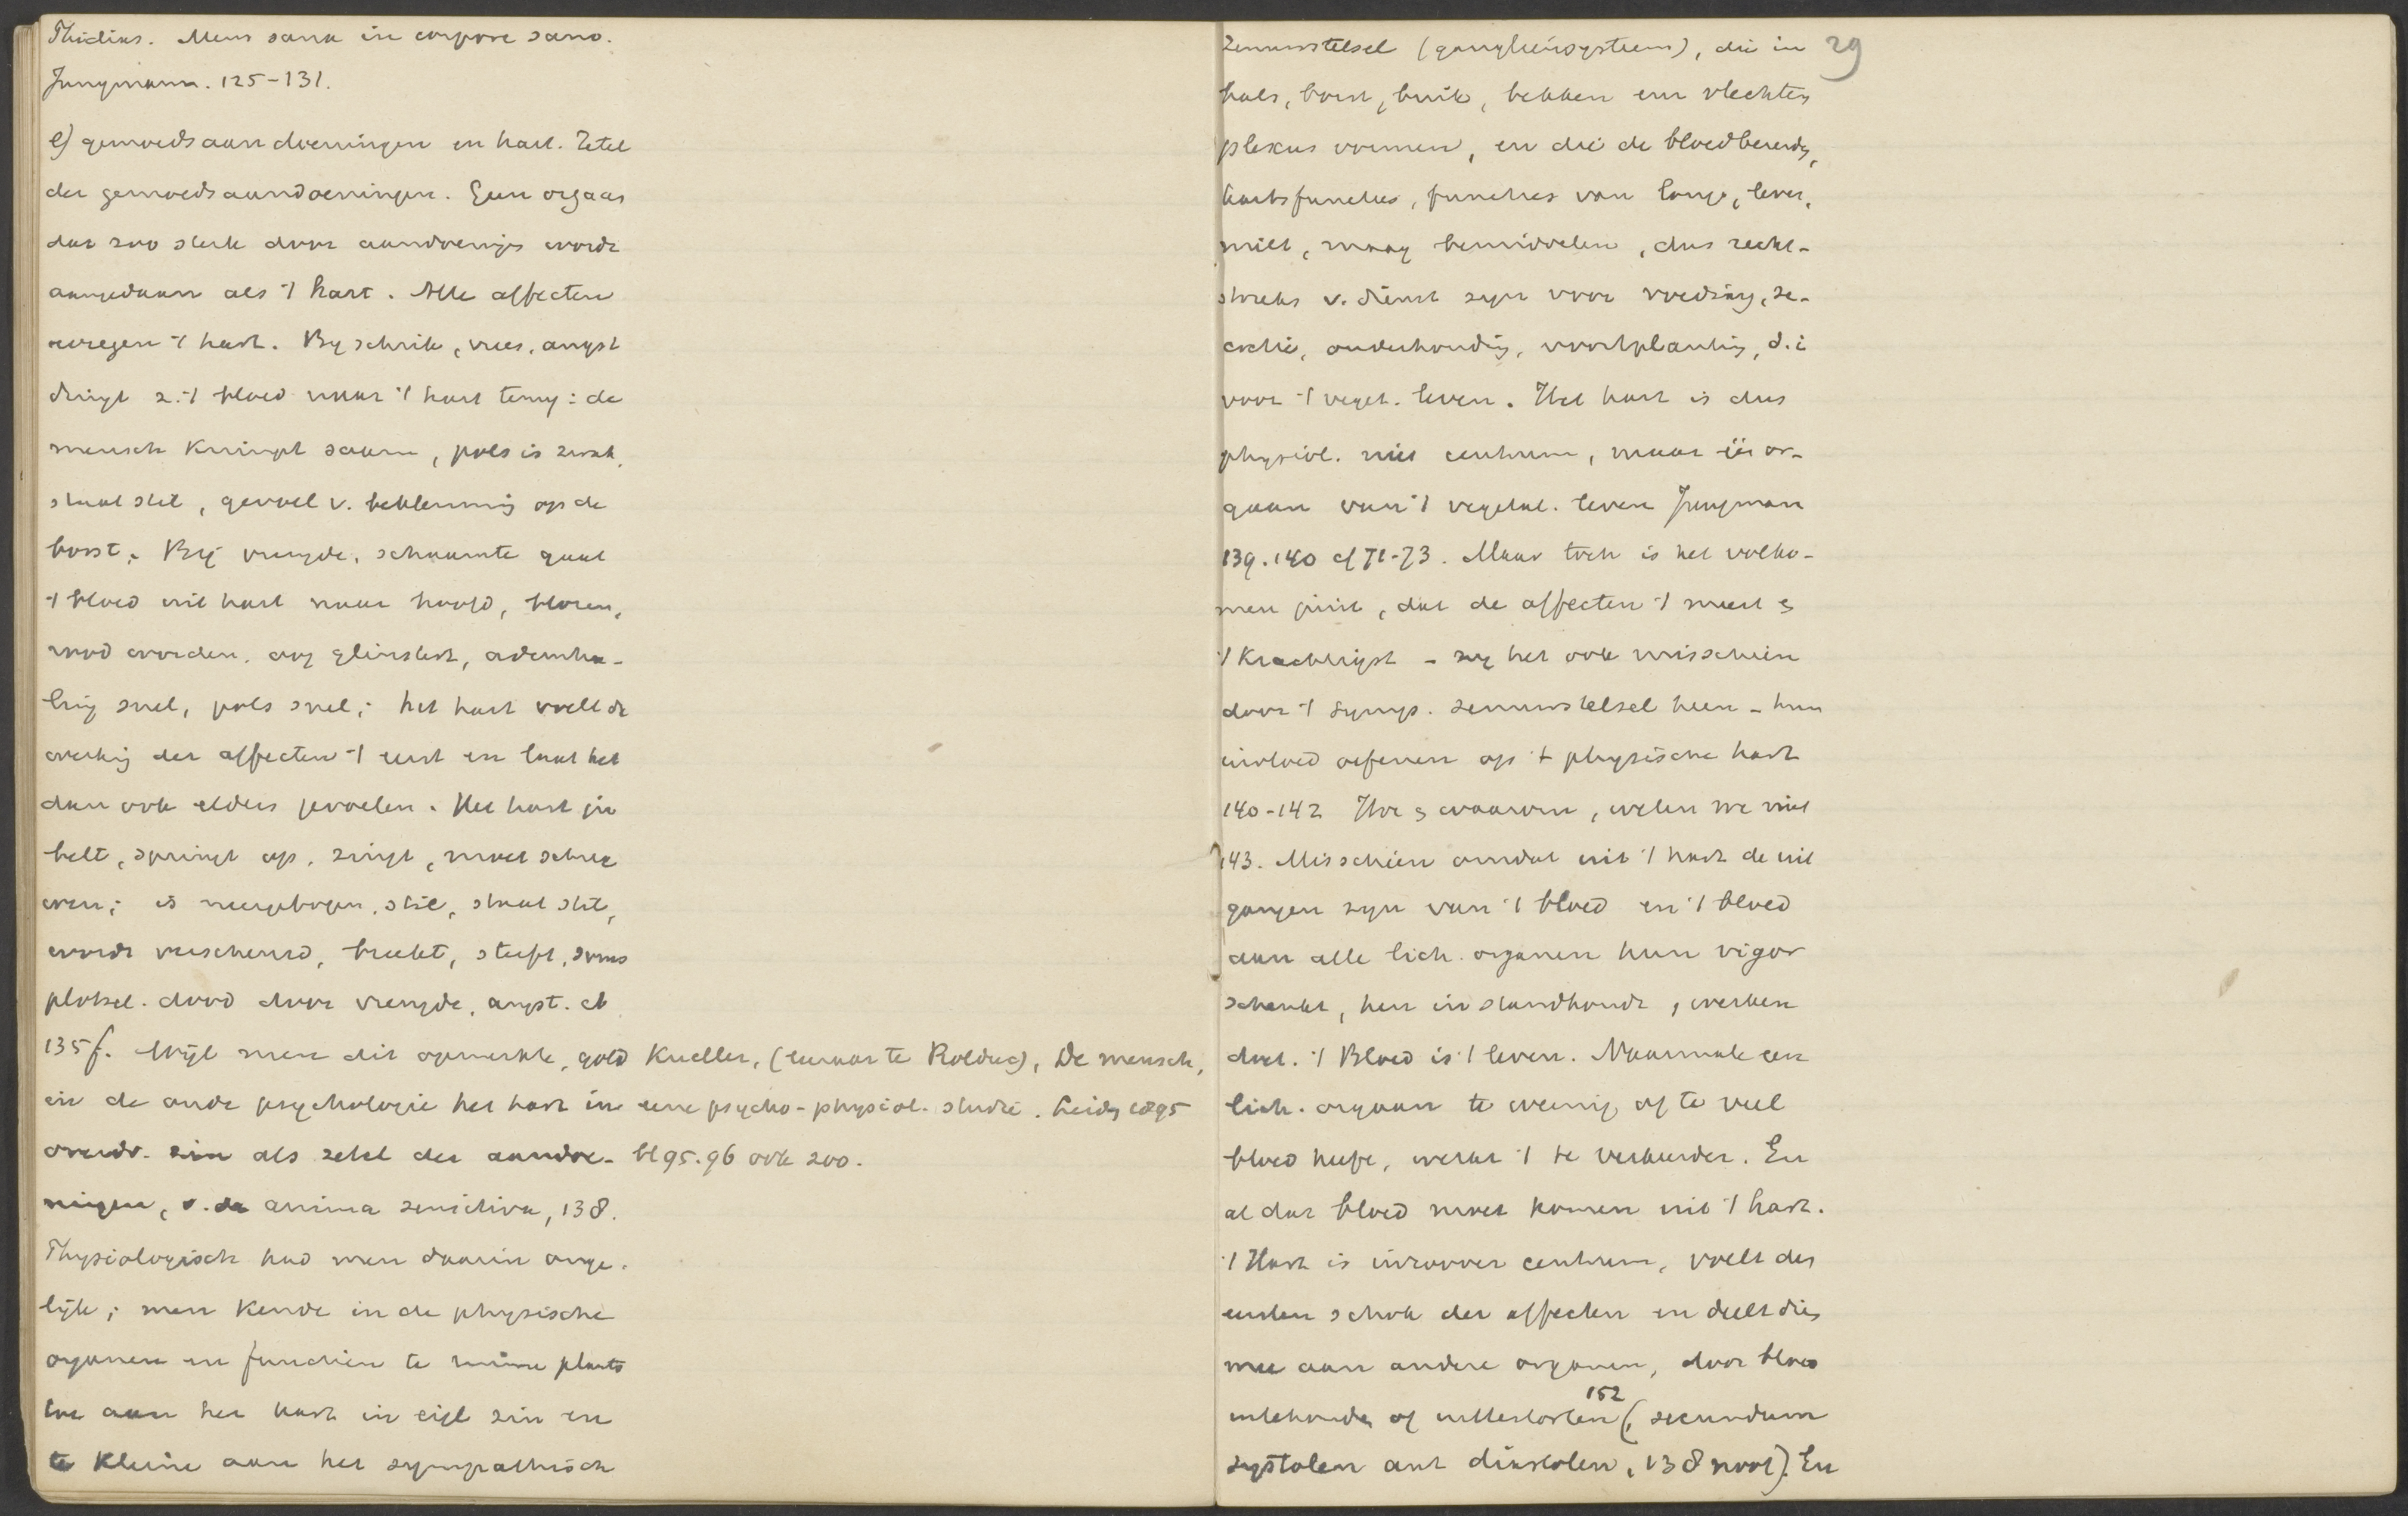 Phidias. Mens sana in corpore sano.
Jungmann. 125-131.
e) gemoedsaandoeningen en hart. Zetel
der gemoedsaandoeningen. Geen orgaan
dat zoo sterk door aandoeningen wordt
aangedaan als 't hart. Alle affecten
bewegen 't hart. By schrik, vrees, angst
dringt z. 't bloed naar 't hart terug: de
mensch krimpt saam, pols is zwak,
staat stil, gevoel v. beklemming op de
borst. Bij vreugde, schaamte gaat
't bloed uit hart naar hoofd, blozen,
rood worden, oog glinstert, ademha-
ling snel, pols snel; het hart voelt de
werking der affecten 't eerst en laat het
dan ook elders gevoelen. Het hart ju
belt, springt op, zingt, moet schree
wen; is neergebogen, stil, staat stil,
wordt verscheurd, breekt, sterft, soms
plotsel. dood door vreugde, angst. ib
135 f. Wijl men dit opmerkte, gold
in de oude psychologie het hart in
overdr. zin als zetel der aandoe-
ningen, v. de anima sensitiva, 138.
Physiologisch had men daarin onge-
lijk; men kende in de physische
organen en functiën te ruime plaats
toe aan het hart in eigl zin en
te kleine aan het sympathisch
Kneller, (leeraar te Rolduc), De mensch,
eene psycho-physiol. studie. Leiden 1895
bl 95. 96 ook 200.
29
zenuwstelsel (gangliënsysteem), die in
hals, borst, buik, bekken een vlechten
plexus vormen, en die de bloedbereiding,
hartsfuncties, functies van long, lever,
milt, maag bemiddelen, dus recht-
streeks v. dienst zyn voor voeding, se-
cretie, onderhouding, voortplanting, d.i
voor 't veget. leven. Het hart is dus
physiol. niet centrum, maar één or-
gaan van 't vegetat. leven Jungman
139. 140 cf 71-73. Maar toch is het volko-
men juist, dat de affecten 't meest en
't krachtigst - zy het ook misschien
door 't symp. zenuwstelsel heen - hun
invloed oefenen op 't physische hart
140-142 Hoe en waarom, weten we niet
143. Misschien omdat uit 't hart de uit
gangen zyn van 't bloed en 't bloed
aan alle lich. organen hun vigor
schenkt, hen in standhoudt, werken
doet. 't Bloed is 't leven. Naarmate een
lich. orgaan te weinig of te veel
bloed heeft, werkt 't te verkeerder. En
al dat bloed moet komen uit 't hart.
't Hart is inzoover centrum, voelt den
eersten schok der affecten en deelt dien
mee aan andere organen, door bloed
intehouden of uittestorten 152 (, secundum
systolen aut diastolen, 138 noot). En